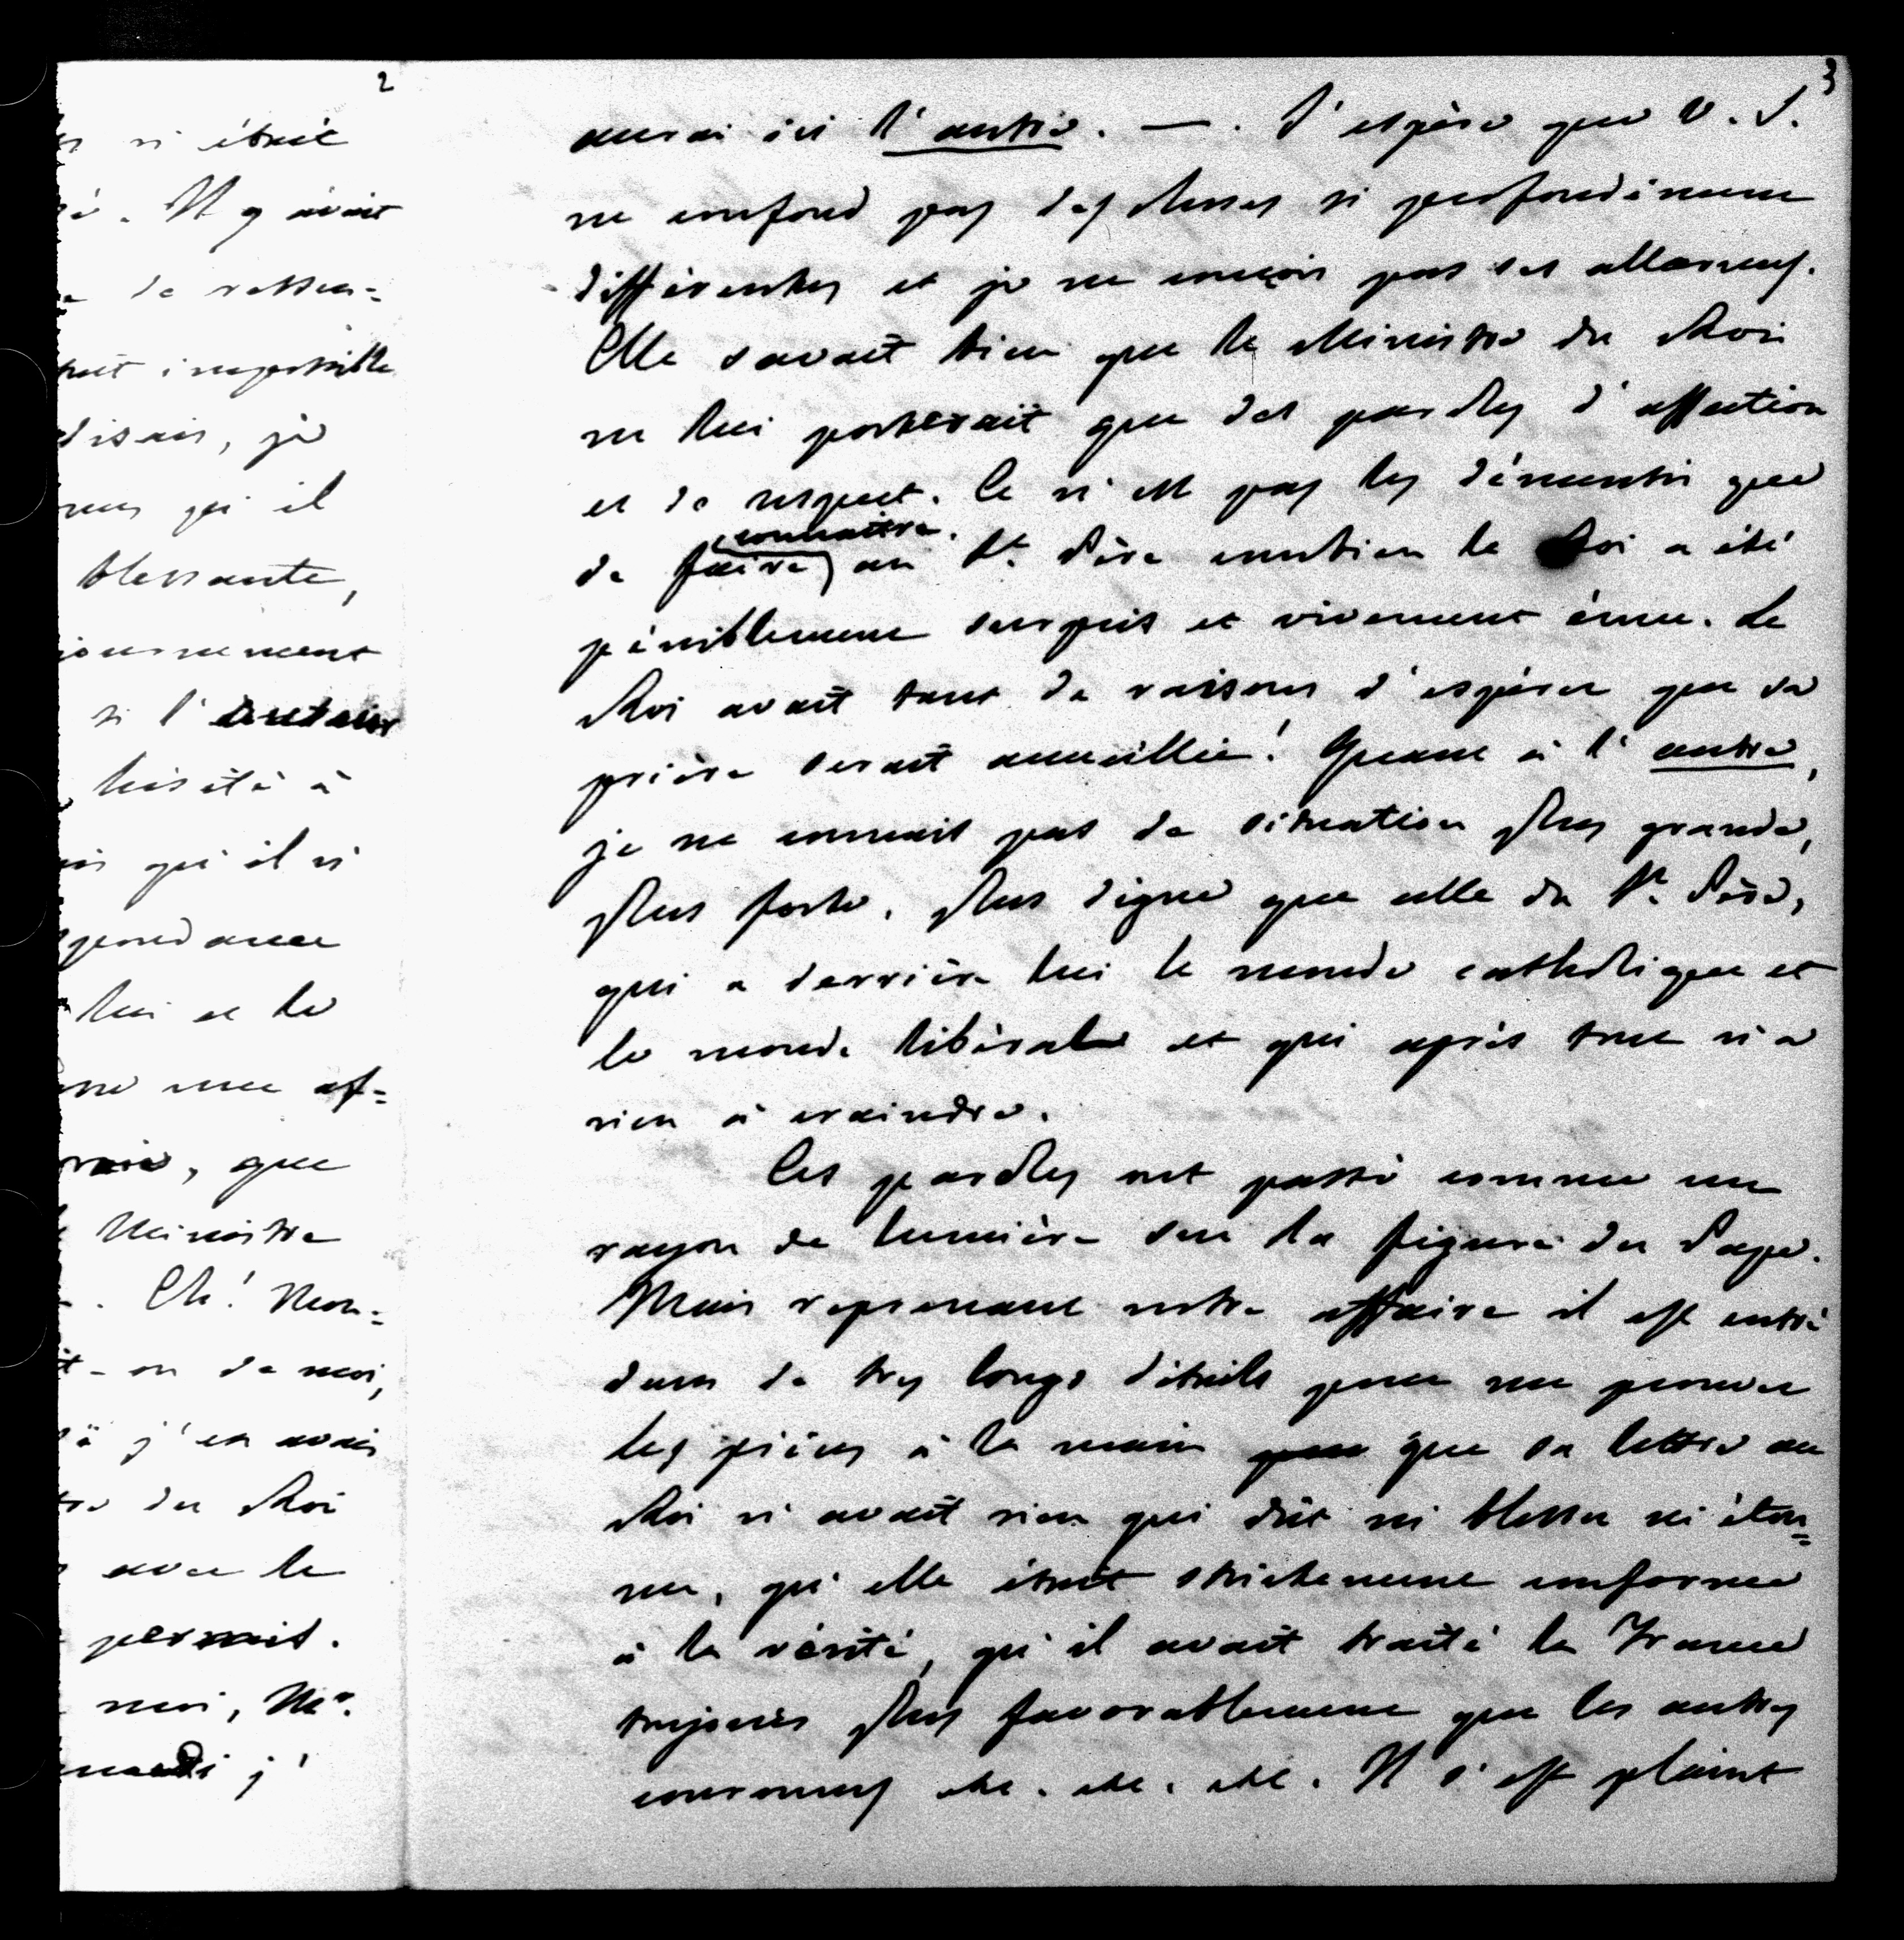 2
n'était
. Il y avait
de ressen=
impossible
disais, je
qu'il
blessante,
si l'
hésité à
qu'il n'
lui et le
une af=
, que
Ministre
. Eh! Mon=
t-on de moi,
j'en avais
du Roi
avec le
permis.
moi, Mr.
j'
3
aurai ici l'autre. —. J'espère que V. S.
ne confond pas des choses si profondément
différentes et je ne conçois pas ses allarmes.
Elle savait bien que le Ministre du Roi
ne lui porterait que des paroles d'affection
et de respect. Ce n'est pas les démentir que
de faire connaître au St. Père combien le Roi a été
péniblement surpris et vivement ému. Le
Roi avait tant de raisons d'espérer que sa
prière serait accueillie! Quant à l'autre,
je ne connais pas de situation plus grande,
plus forte, plus digne que celle du St. Père,
qui a derrière lui le monde catholique et
le monde libéral et qui après tout n'a
rien à craindre.
Ces paroles ont passé comme un
rayon de lumière sur la figure du Pape.
Mais reprenant notre affaire il est entré
dans de très longs détails pour me prouver
les pièces à la main que sa lettre au
Roi n'avait rien qui dût ni blesser ni éton=
ner, qu'elle était strictement conforme
à la vérité, qu'il avait traité la France
toujours plus favorablement que les autres
couronnes etc. etc. etc. Il s'est plaint